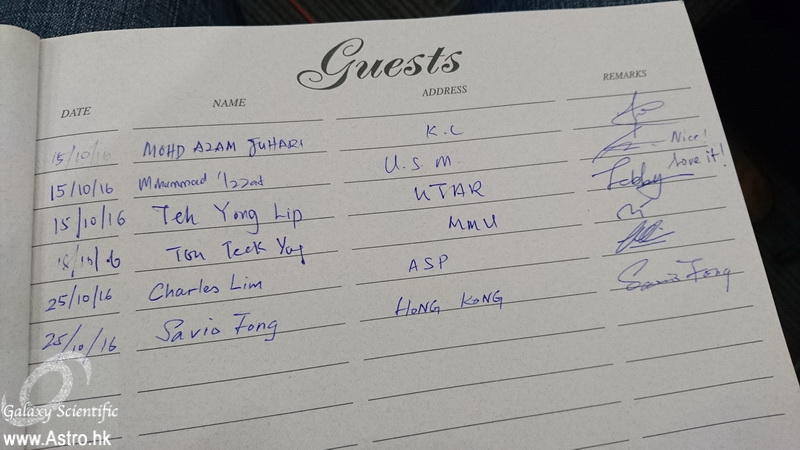 Guests
DATE NAME ADDRESS REMARKS
15/10/16 MOHD AZAM JUHARI K.L
15/10/16 Muhammad 'Izzat U.S.M. Nice!
love it!
15/10/16 Teh Yong Lip UTAR
15/10/16 Tan Teck MMU
25/10/16 Charles Lim ASP
25/10/16 Savio Fong HONG KONG Savio Fong
Galaxy Scientific
www.Astro.hk